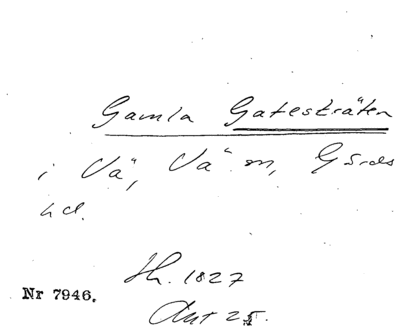 Gamla Gatesträten
i Vä, Vä sn, Gärds
hd.
Th. 1827
Nr 7946.
Akt 25.